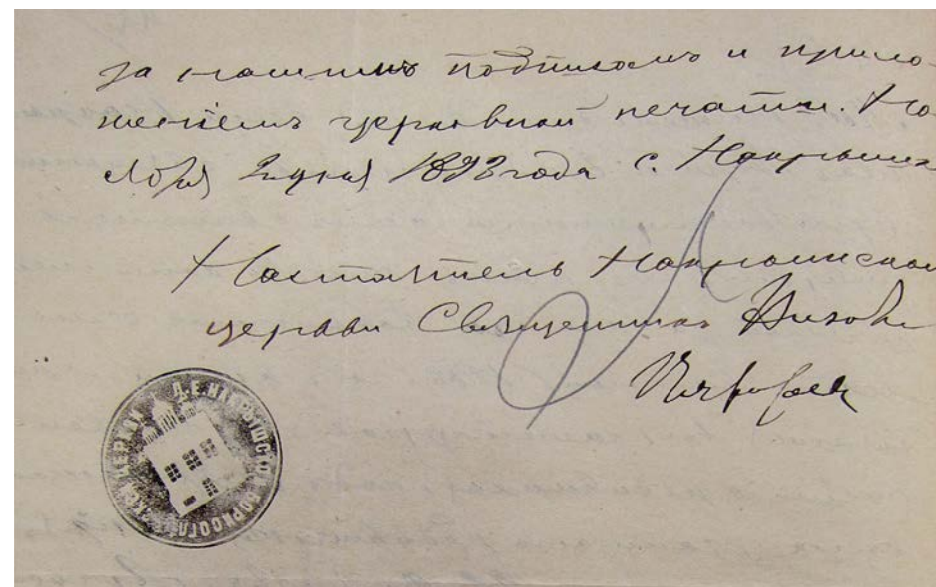 за нашимъ подписомъ и прило-
женіемъ церковной печати. Но-
ября 2 дня 1893 года с. Накрышки
Настоятель Накрышской
церкви Священникъ